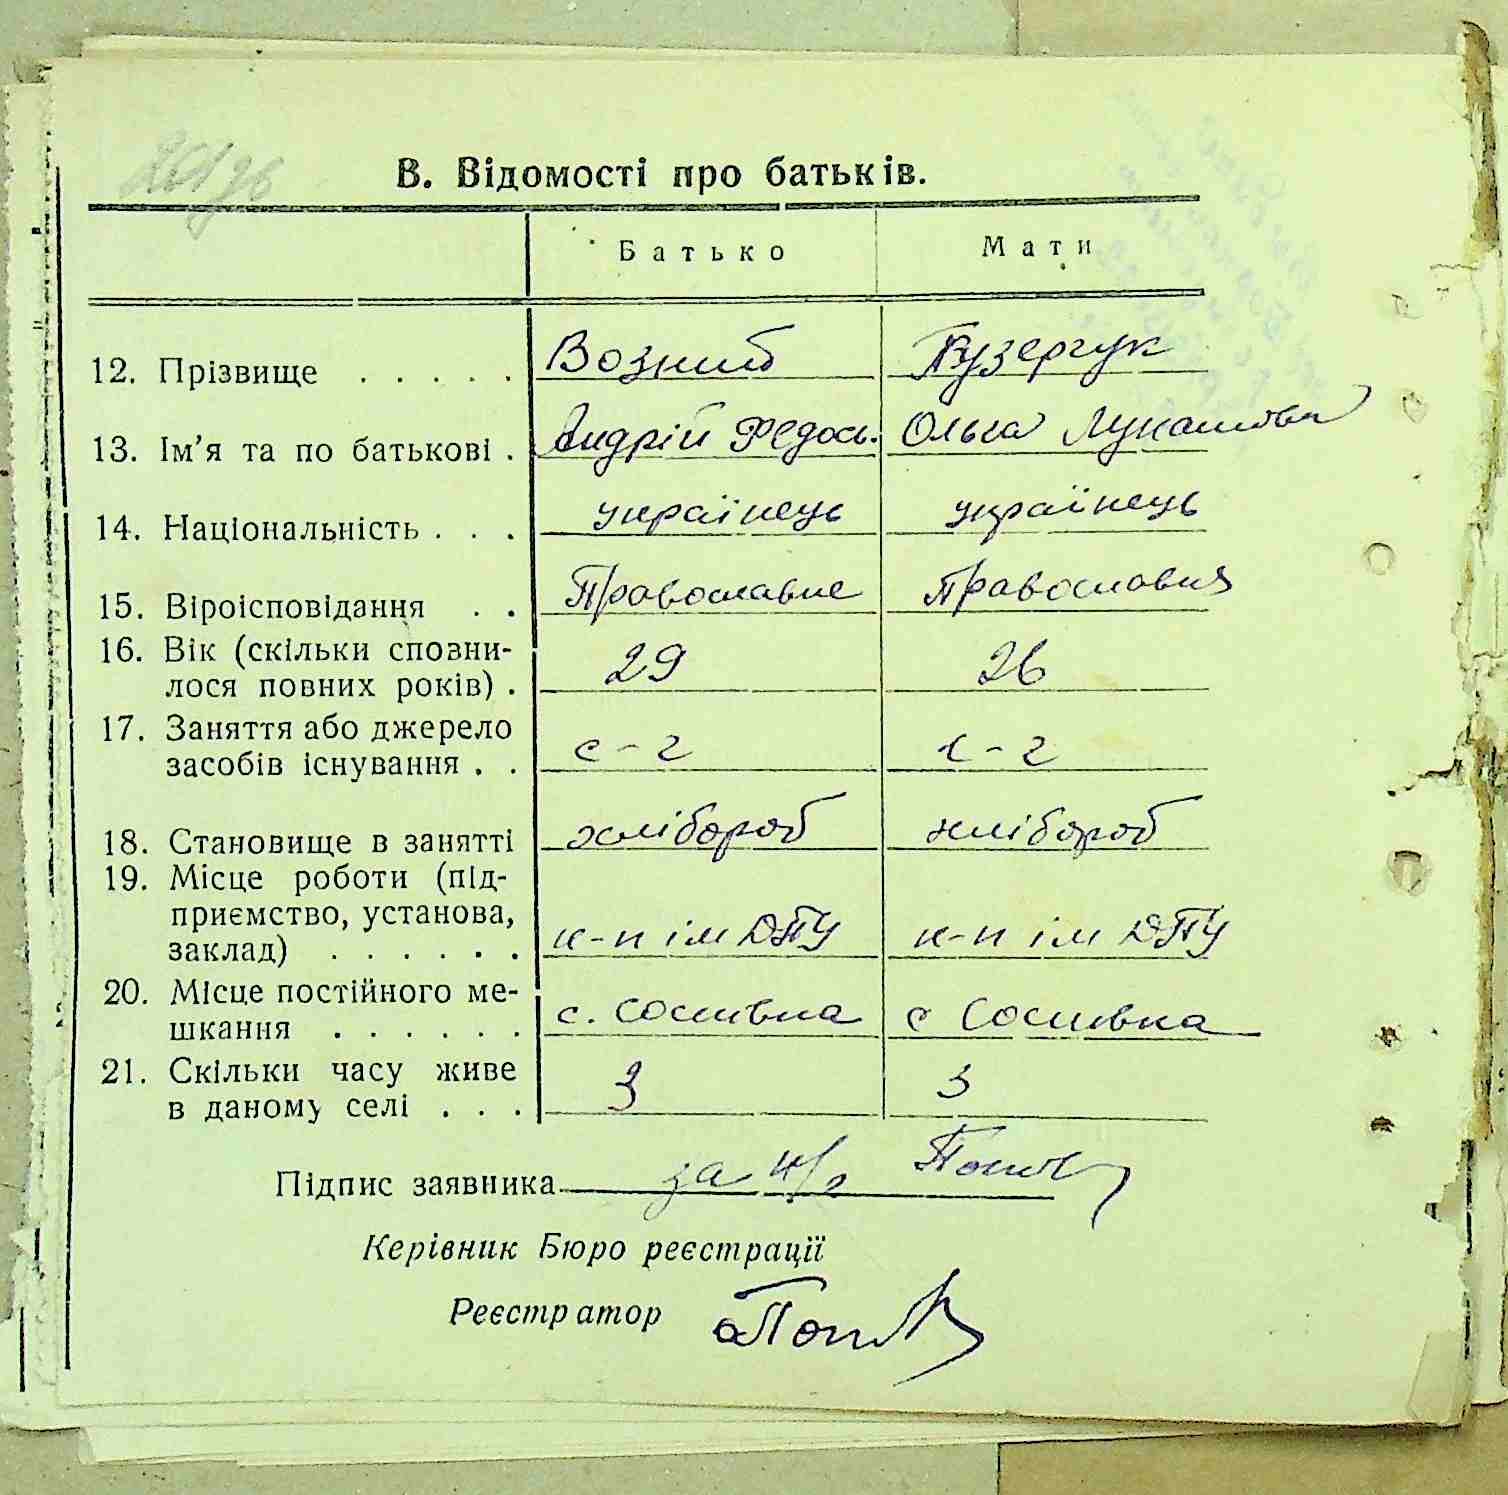 В. Відомості про батьків.
Батько Мати
12. Прізвище . . . . . Возний Пузерчук
13. Ім’я та по батькові . Андрій Федось. Ольга Лукашовна
14. Національність . . . українець українець
15. Віроісповідання . . Православне Православна
16. Вік (скільки сповни-
лося повних років) . 29 26
17. Заняття або джерело
засобів існування . . с-г с-г
18. Становище в занятті хлібороб хлібороб
19. Місце роботи (під-
приємство, установа,
заклад) . . . . . . к-п ім ДПУ к-п ім ДПУ
20. Місце постійного ме-
шкання . . . . . . с. Сосивка с Сосивка
21. Скільки часу живе
в даному селі . . . 3 3
Підпис заявника за н/г
Керівник Бюро реєстрації
Реєстратор